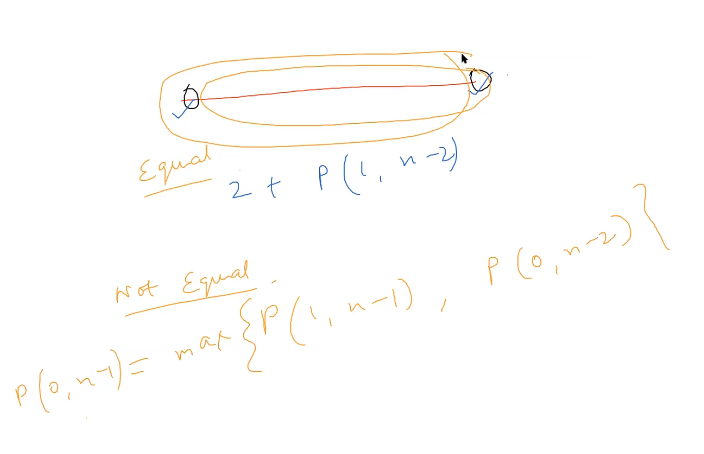 Equal
2 + P(1, n-2)
Not Equal
P(0, n-1) = max { P(1, n-1), P(0, n-2) }